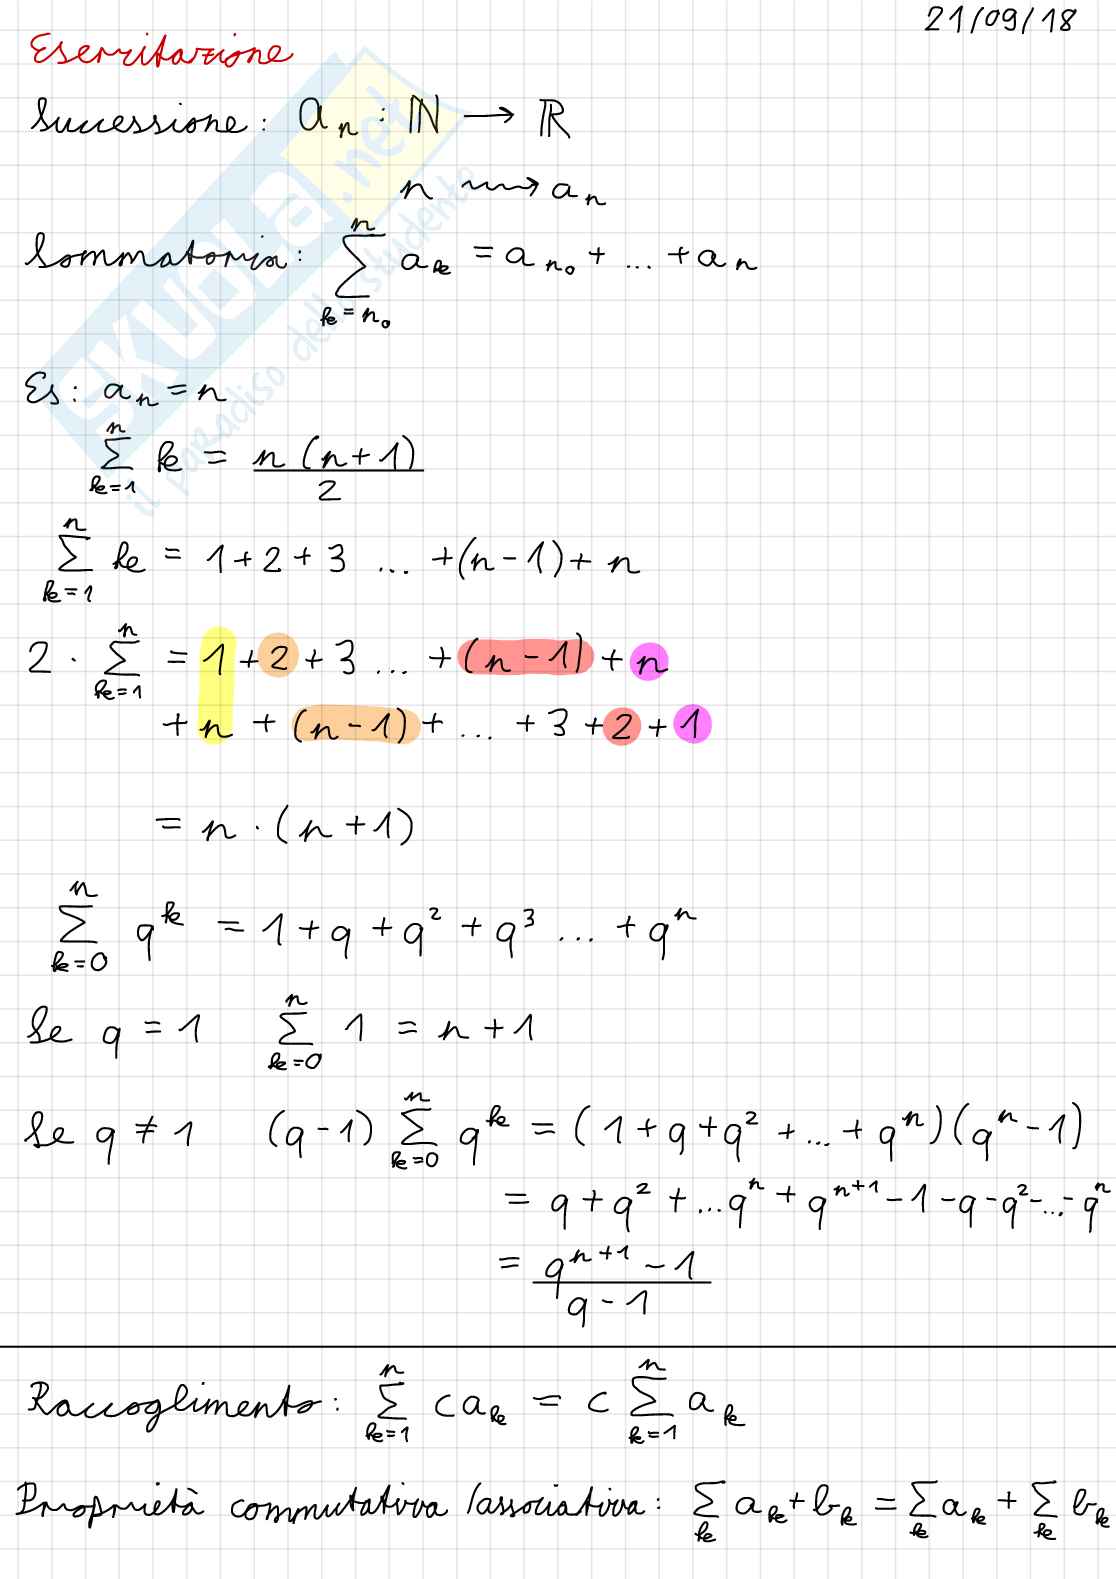 21/09/18
Esercitazione
Successione: aₙ : ℕ ⟶ ℝ
n ⟿ aₙ
Sommatoria: ∑_{k=n₀}^{n} a_k = a_{n₀} + ... + aₙ
Es: aₙ = n
∑_{k=1}^{n} k = n(n+1)/2
∑_{k=1}^{n} k = 1+2+3 ... +(n-1)+n
2 · ∑_{k=1}^{n} = 1+2+3 ... +(n-1)+n
+n+(n-1)+ ... +3+2+1
= n·(n+1)
∑_{k=0}^{n} q^k = 1+q+q²+q³ ... +qⁿ
Se q = 1 ∑_{k=0}^{n} 1 = n+1
Se q ≠ 1 (q-1) ∑_{k=0}^{n} q^k = (1+q+q²+...+qⁿ)(qⁿ-1)
= q+q²+...qⁿ+q^{n+1}-1-q-q²-...-qⁿ
= (q^{n+1}-1)/(q-1)
Raccoglimento: ∑_{k=1}^{n} c a_k = c ∑_{k=1}^{n} a_k
Proprietà commutativa/associativa: ∑_k a_k+b_k = ∑_k a_k + ∑_k b_k
SKUOLA.net
il paradiso dello studente